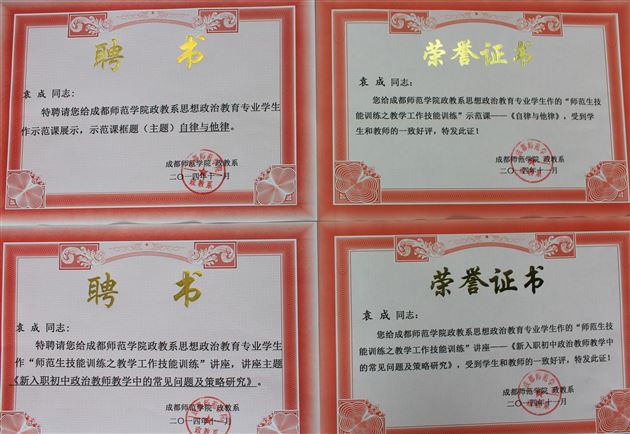 聘 书
袁成 同志:
特聘请您给成都师范学院政教系思想政治教育专业学生
作示范课展示,示范课框题(主题)自律与他律。
成都师范学院 政教系
二〇一四年十一月
荣誉证书
袁成 同志:
您给成都师范学院政教系思想政治教育专业学生作的“师范生技
能训练之教学工作技能训练”示范课——《自律与他律》,受到学
生和教师的一致好评,特发此证!
成都师范学院 政教系
二〇一四年十一月
聘 书
袁成 同志:
特聘请您给成都师范学院政教系思想政治教育专业学生
作“师范生技能训练之教学工作技能训练”讲座,讲座主题
《新入职初中政治教师教学中的常见问题及策略研究》。
成都师范学院 政教系
二〇一四年十一月
荣誉证书
袁成 同志:
您给成都师范学院政教系思想政治教育专业学生作的“师范生技
能训练之教学工作技能训练”讲座——《新入职初中政治教师教学中
的常见问题及策略研究》,受到学生和教师的一致好评,特发此证!
成都师范学院 政教系
二〇一四年十一月